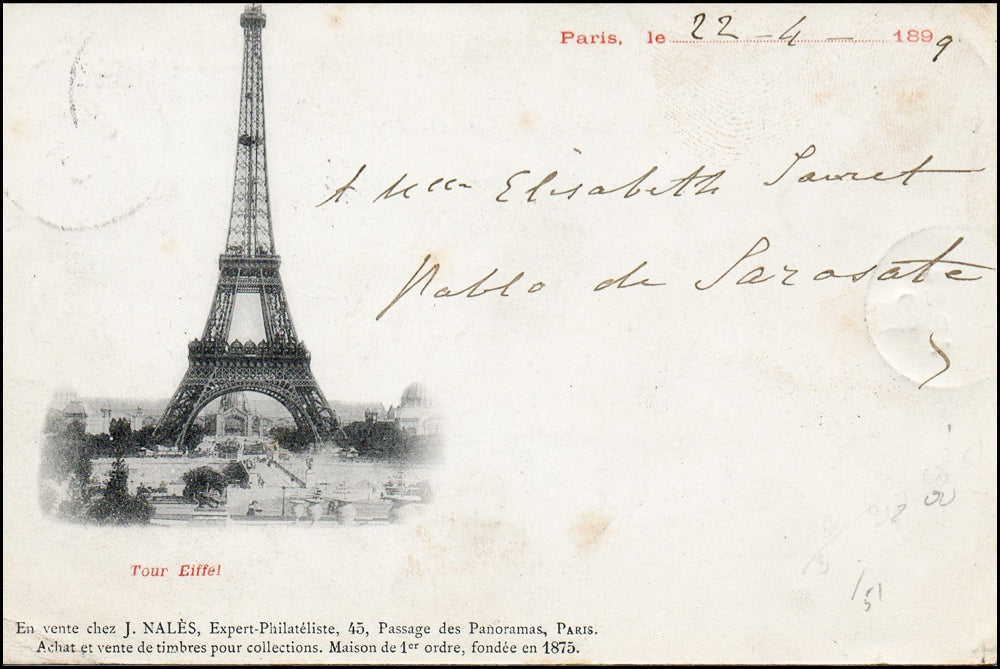 Paris, le 22 - 4 - 1899
A Mlle Elisabeth
Pablo de Sarasate
Tour Eiffel
En vente chez J. NALÈS, Expert-Philatéliste, 45, Passage des Panoramas, PARIS.
Achat et vente de timbres pour collections. Maison de 1er ordre, fondée en 1875.